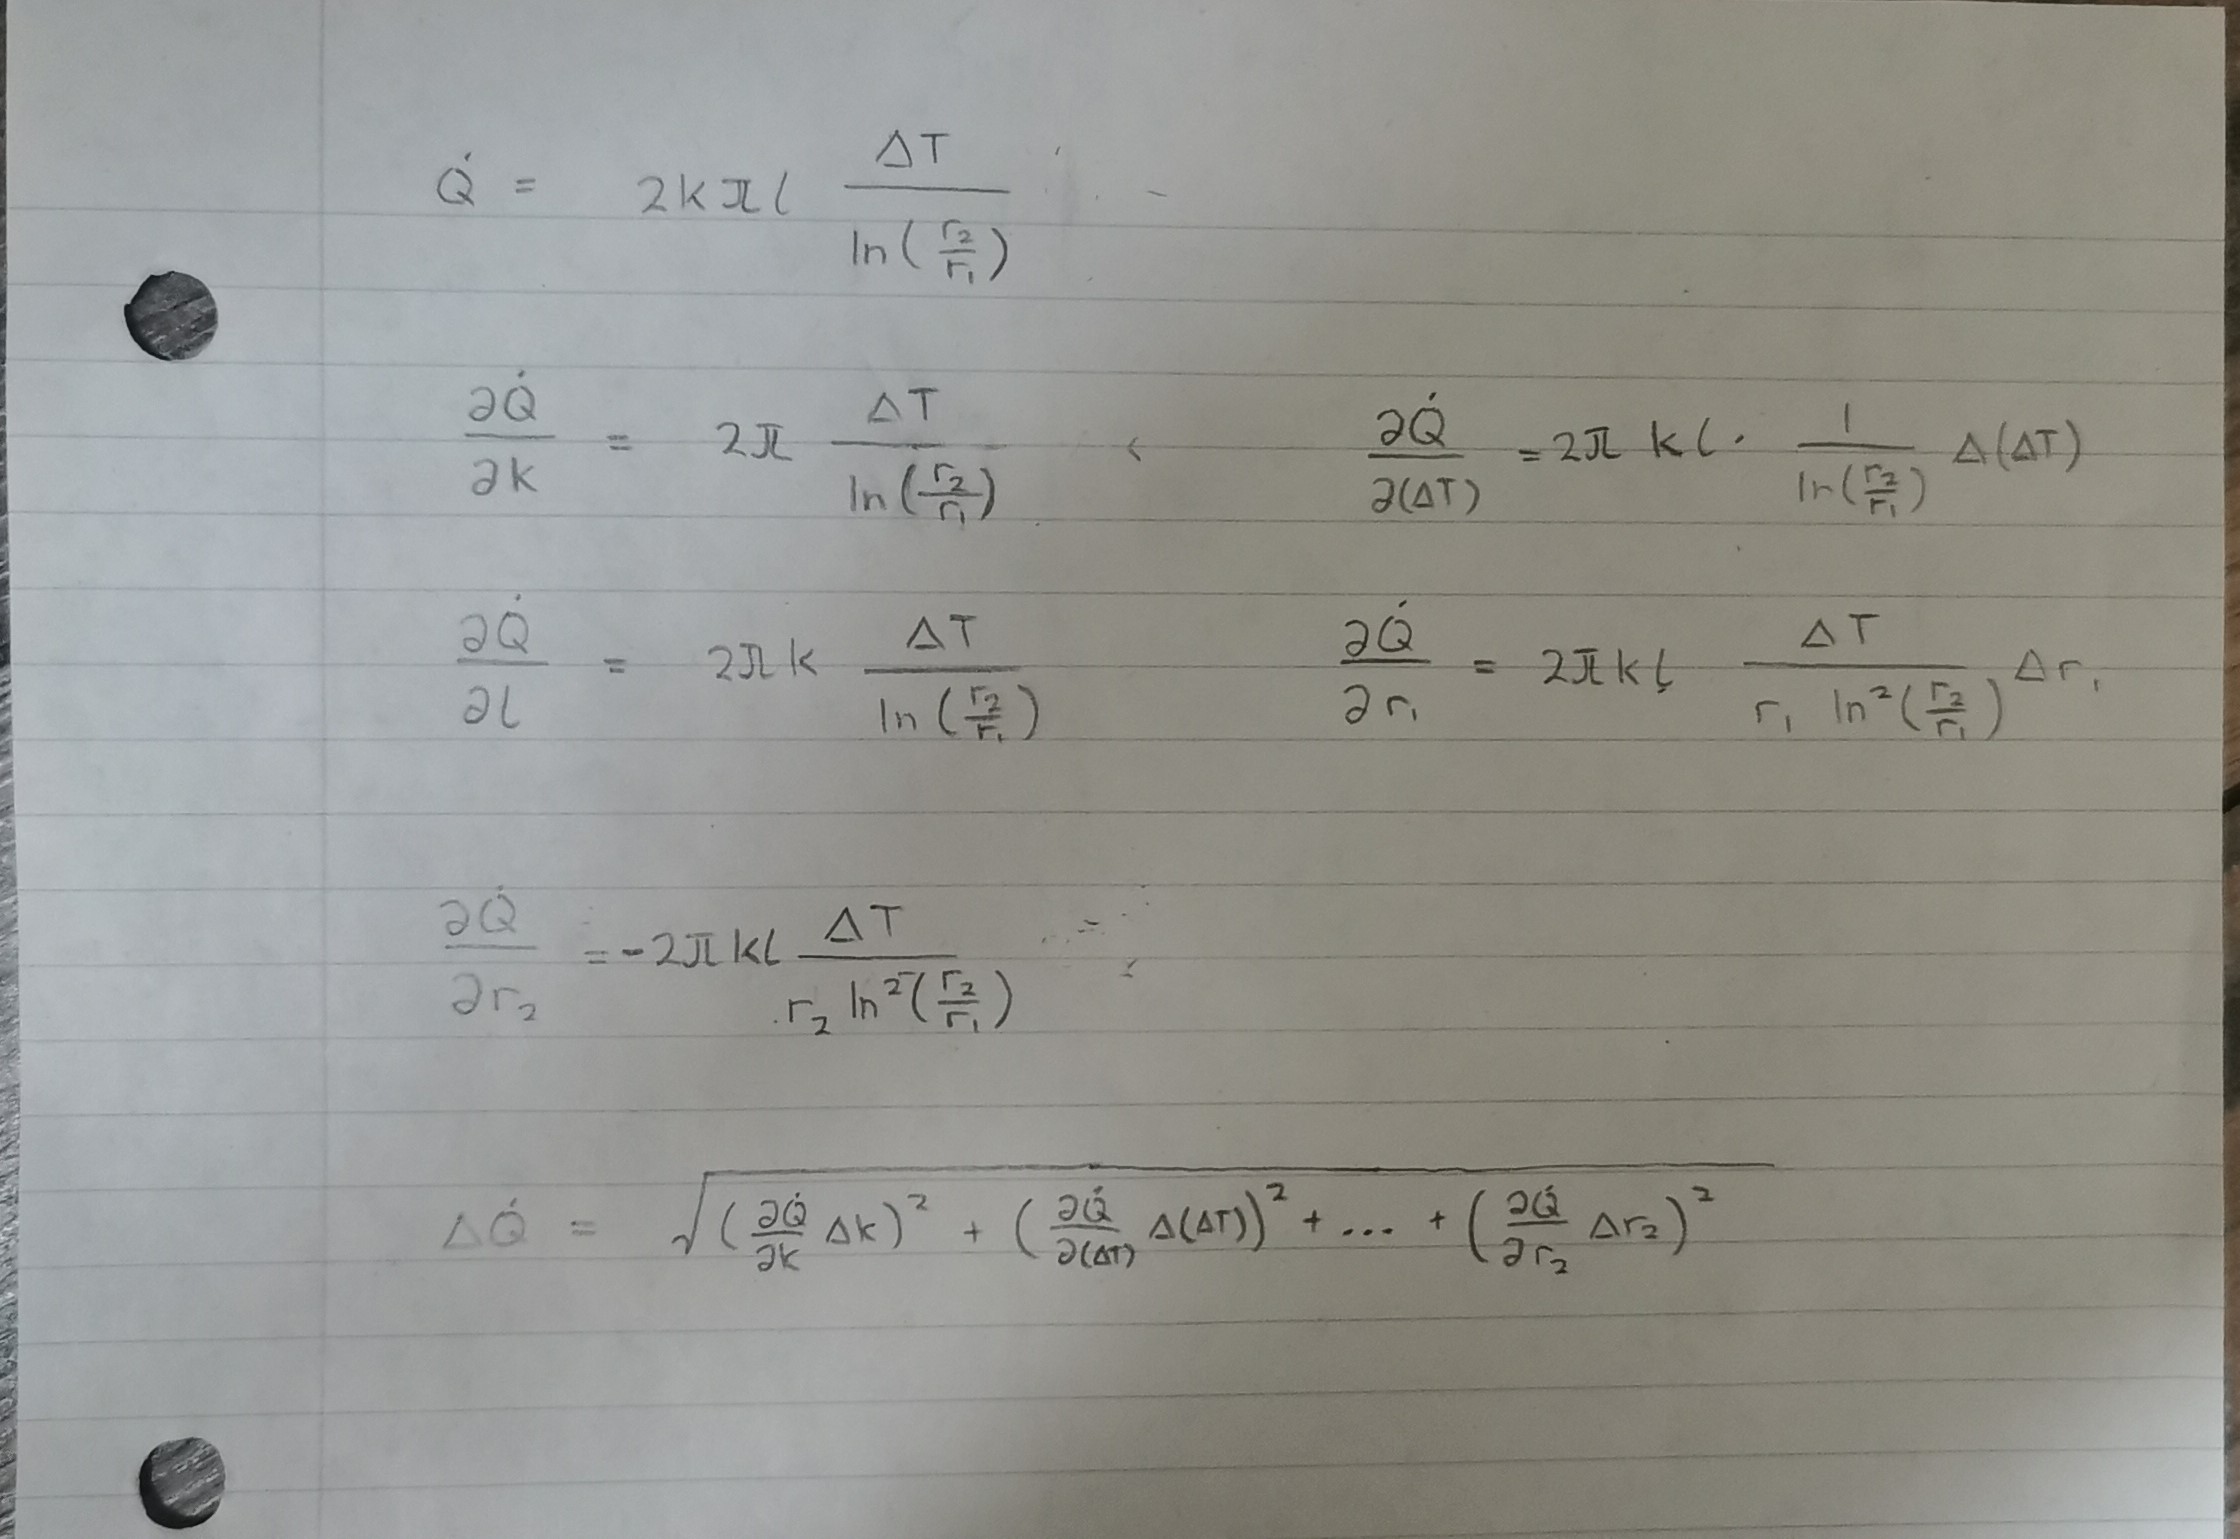 Q̇ = 2kπl ΔT / ln(r₂/r₁)
∂Q̇/∂k = 2π ΔT / ln(r₂/r₁)    ∂Q̇/∂(ΔT) = 2π kl · 1 / ln(r₂/r₁) Δ(ΔT)
∂Q̇/∂l = 2πk ΔT / ln(r₂/r₁)    ∂Q̇/∂r₁ = 2πkl ΔT / r₁ ln²(r₂/r₁) Δr₁
∂Q̇/∂r₂ = -2πkl ΔT / r₂ ln²(r₂/r₁)
ΔQ̇ = √((∂Q̇/∂k Δk)² + (∂Q̇/∂(ΔT) Δ(ΔT))² + ... + (∂Q̇/∂r₂ Δr₂)²)